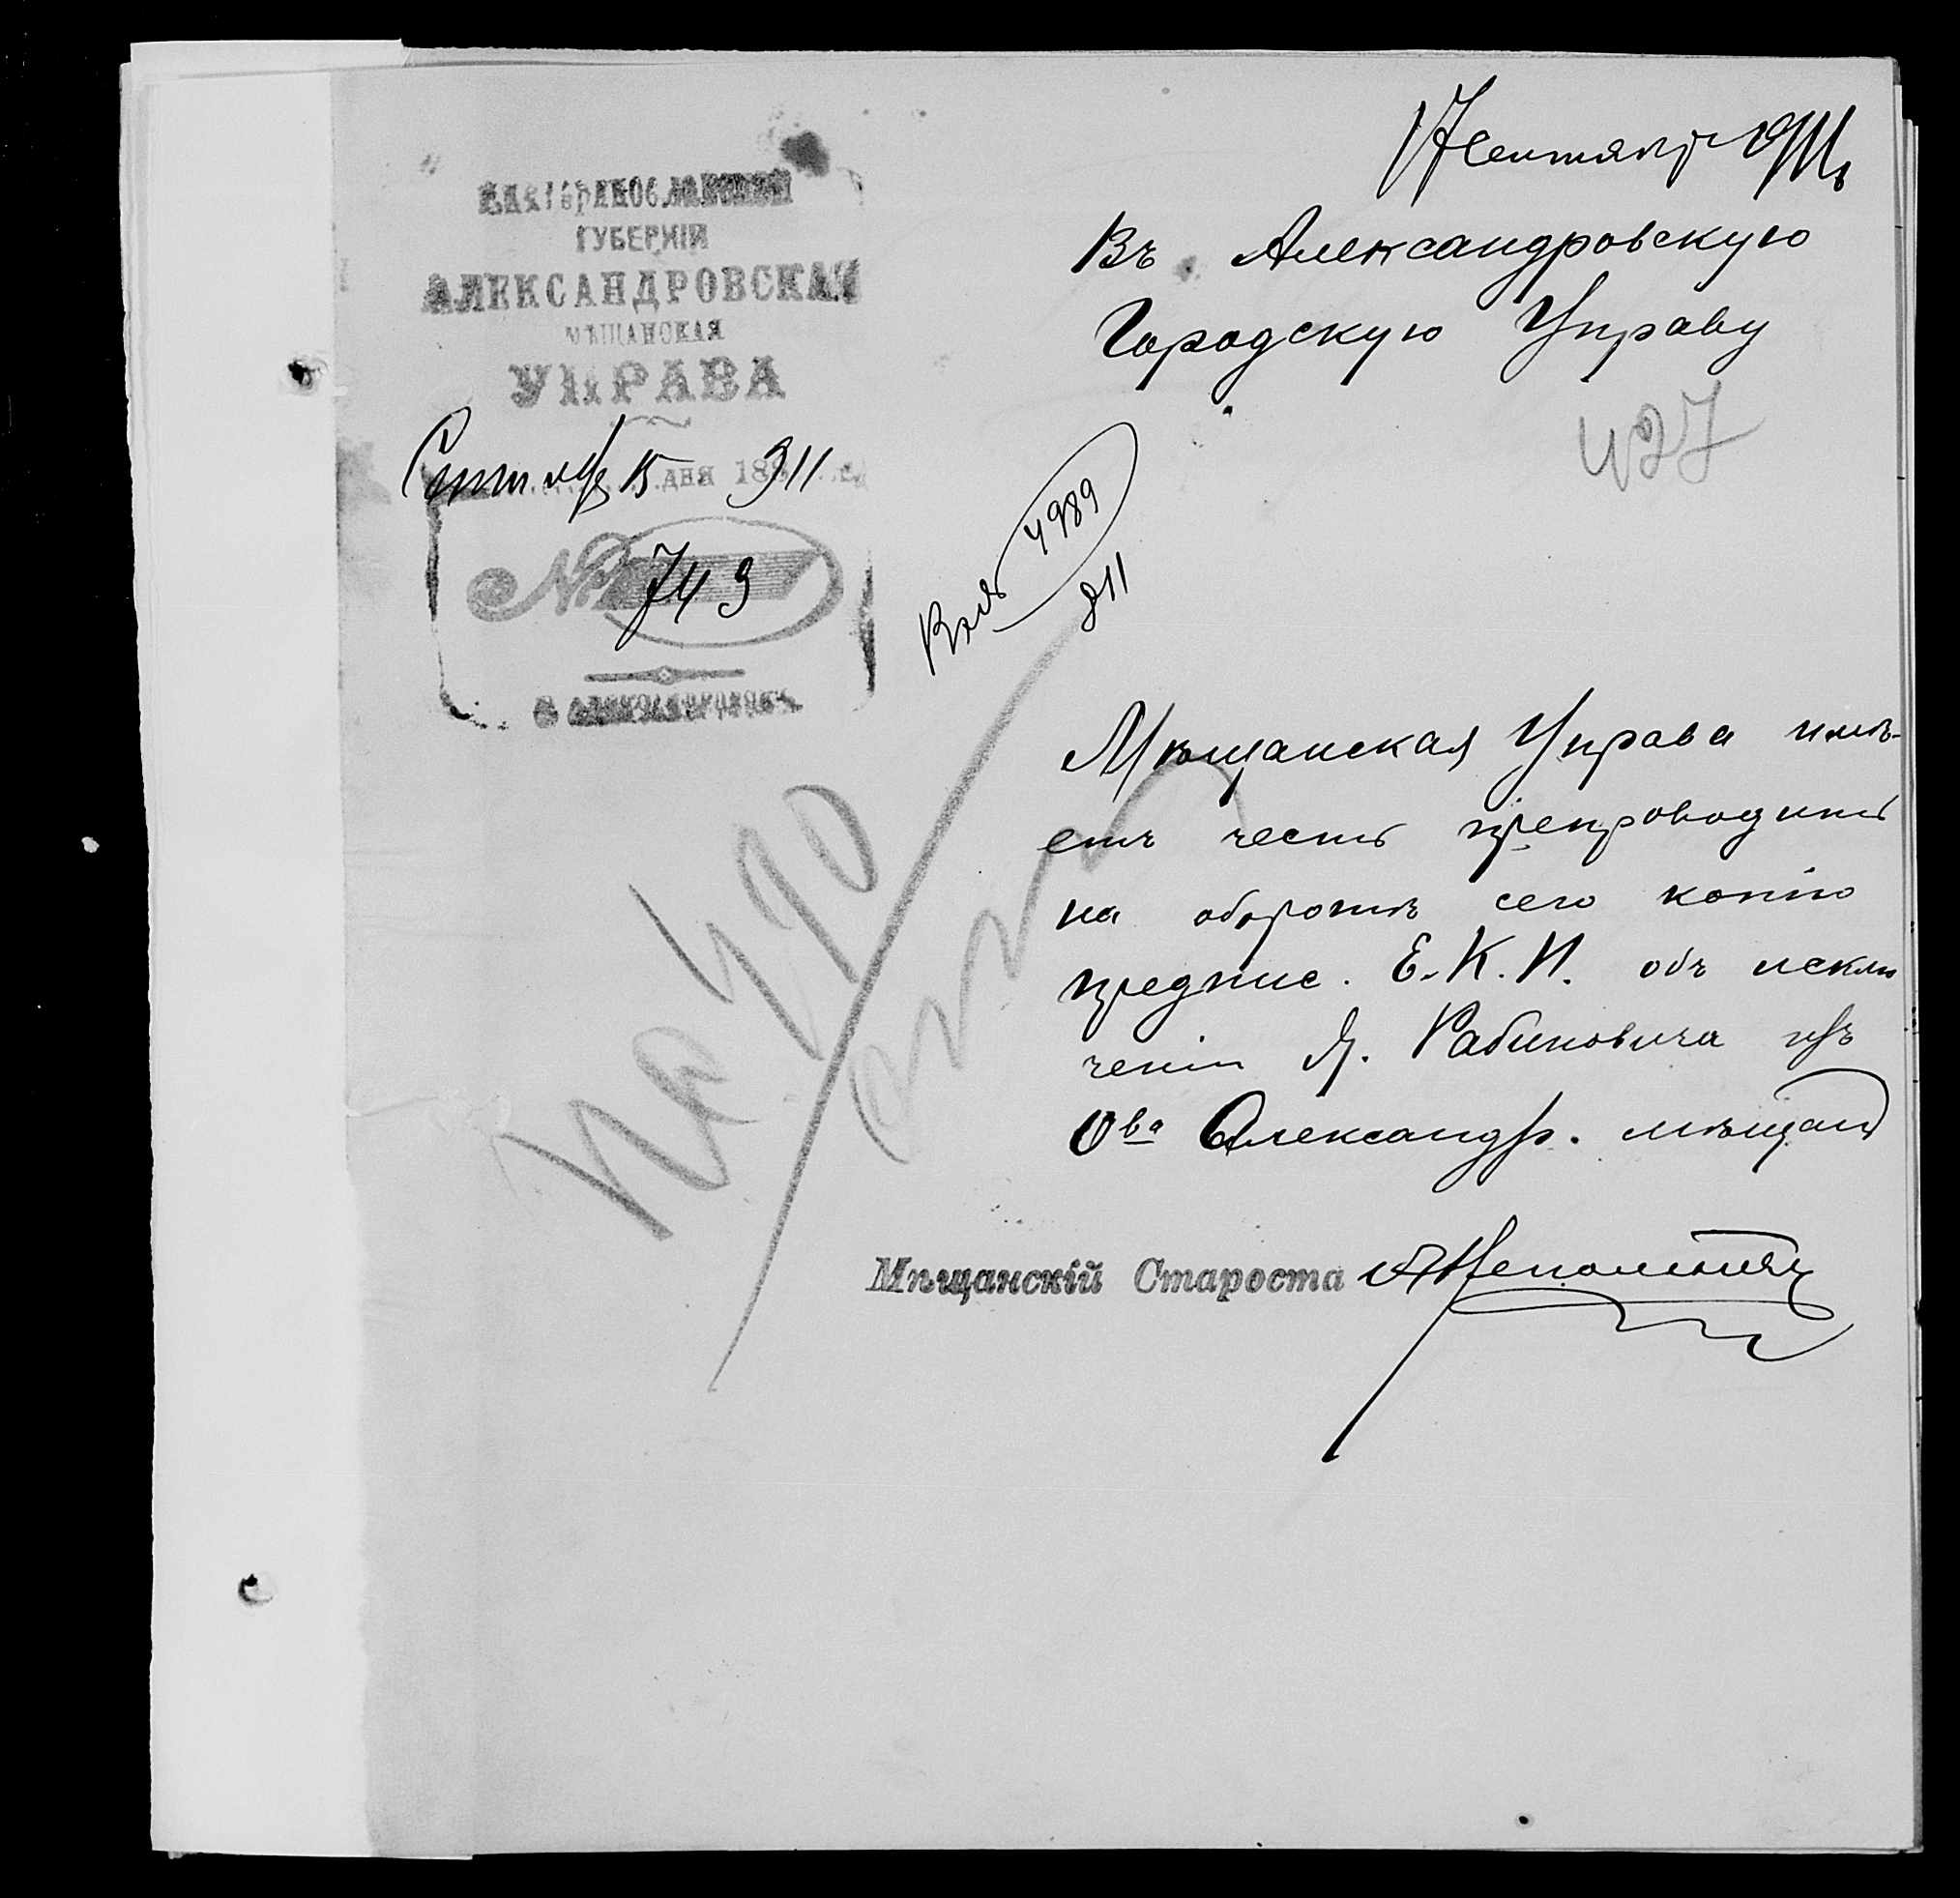 17 Сентября 1911 г.
ЕКАТЕРИНОСЛАВСКОЙ
ГУБЕРНІИ
АЛЕКСАНДРОВСКАЯ
МѢЩАНСКАЯ
УПРАВА
Сентября 15 дня 1911 г.
№ 749
г. Александровскъ
Въ Александровскую
Городскую Управу
427
4989
911
Мѣщанская Управа имѣ-
етъ честь препроводить
на оборотѣ сего копію
предпис. Е. К. П. объ исклю
ченіи Я. Рабиновича изъ
О-ва Александр. мѣщанъ
Мѣщанскій Староста